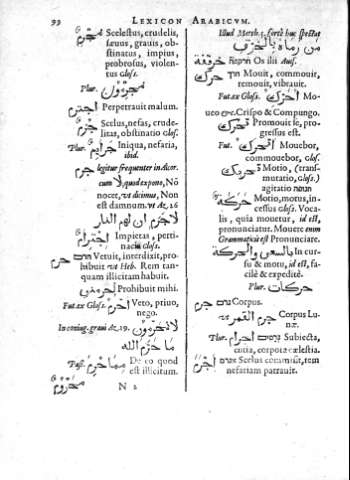 99 LEXICON ARABICVM.
مجرم Scelestus, crudelis,
sævus, gravis, ob-
stinatus, impius,
probrosus, violen-
tus Glos.
Plur. مجرمون
اجترم Perpetravit malum.
جرم Scelus, nefas, crude-
litas, obstinatio Glos.
Plur. جرايم Iniqua, nefaria,
ibid.
جرم legitur frequenter in Alcor.
cum لا, quod expono, Nō
nocet, ut dicimus, Non
est damnum. ut Az. 16
لا جرم ان لهم النار
Impietas, perti-
nacia Glos.
حرم Vetuit, interdixit, pro-
hibuit ut Heb. Rem tan-
quam illicitam habuit.
حرمني Prohibuit mihi.
Fut. ex Glos. Veto, privo,
nego.
In coniug. gravi Az. 29. لا يحرمون
ما حرم الله
Pass. مما حرم De eo quod
est illicitum.
محروم N 2
Illud Matth. 5. fortè huc spectat
Os ilii Auis.
حرك Movit, commovit,
removit, vibravit.
Fut. ex Glos. احرك Mo-
veo &c. Crispo & Compungo.
تحرك Promovit se, pro-
gressus est.
Fut. اتحرك Movebor,
commovebor, Glos.
تحريك Motio, (trans-
mutatio, Glos.)
agitatio
حركة Motio, motus, in-
cessus Glos. Voca-
lis, quia movetur, id est,
pronunciatur. Movere enim
Grammaticis est Pronunciare.
بالسعي والحركة In cur-
su & motu, id est, fa-
cilè & expeditè.
Plur. حركات
جرم Corpus.
جرم القمر Corpus Lu-
næ.
Plur. اجرام Subiecta,
corpora cælestia.
اجرم Scelus commisit, rem
nefariam patravit.